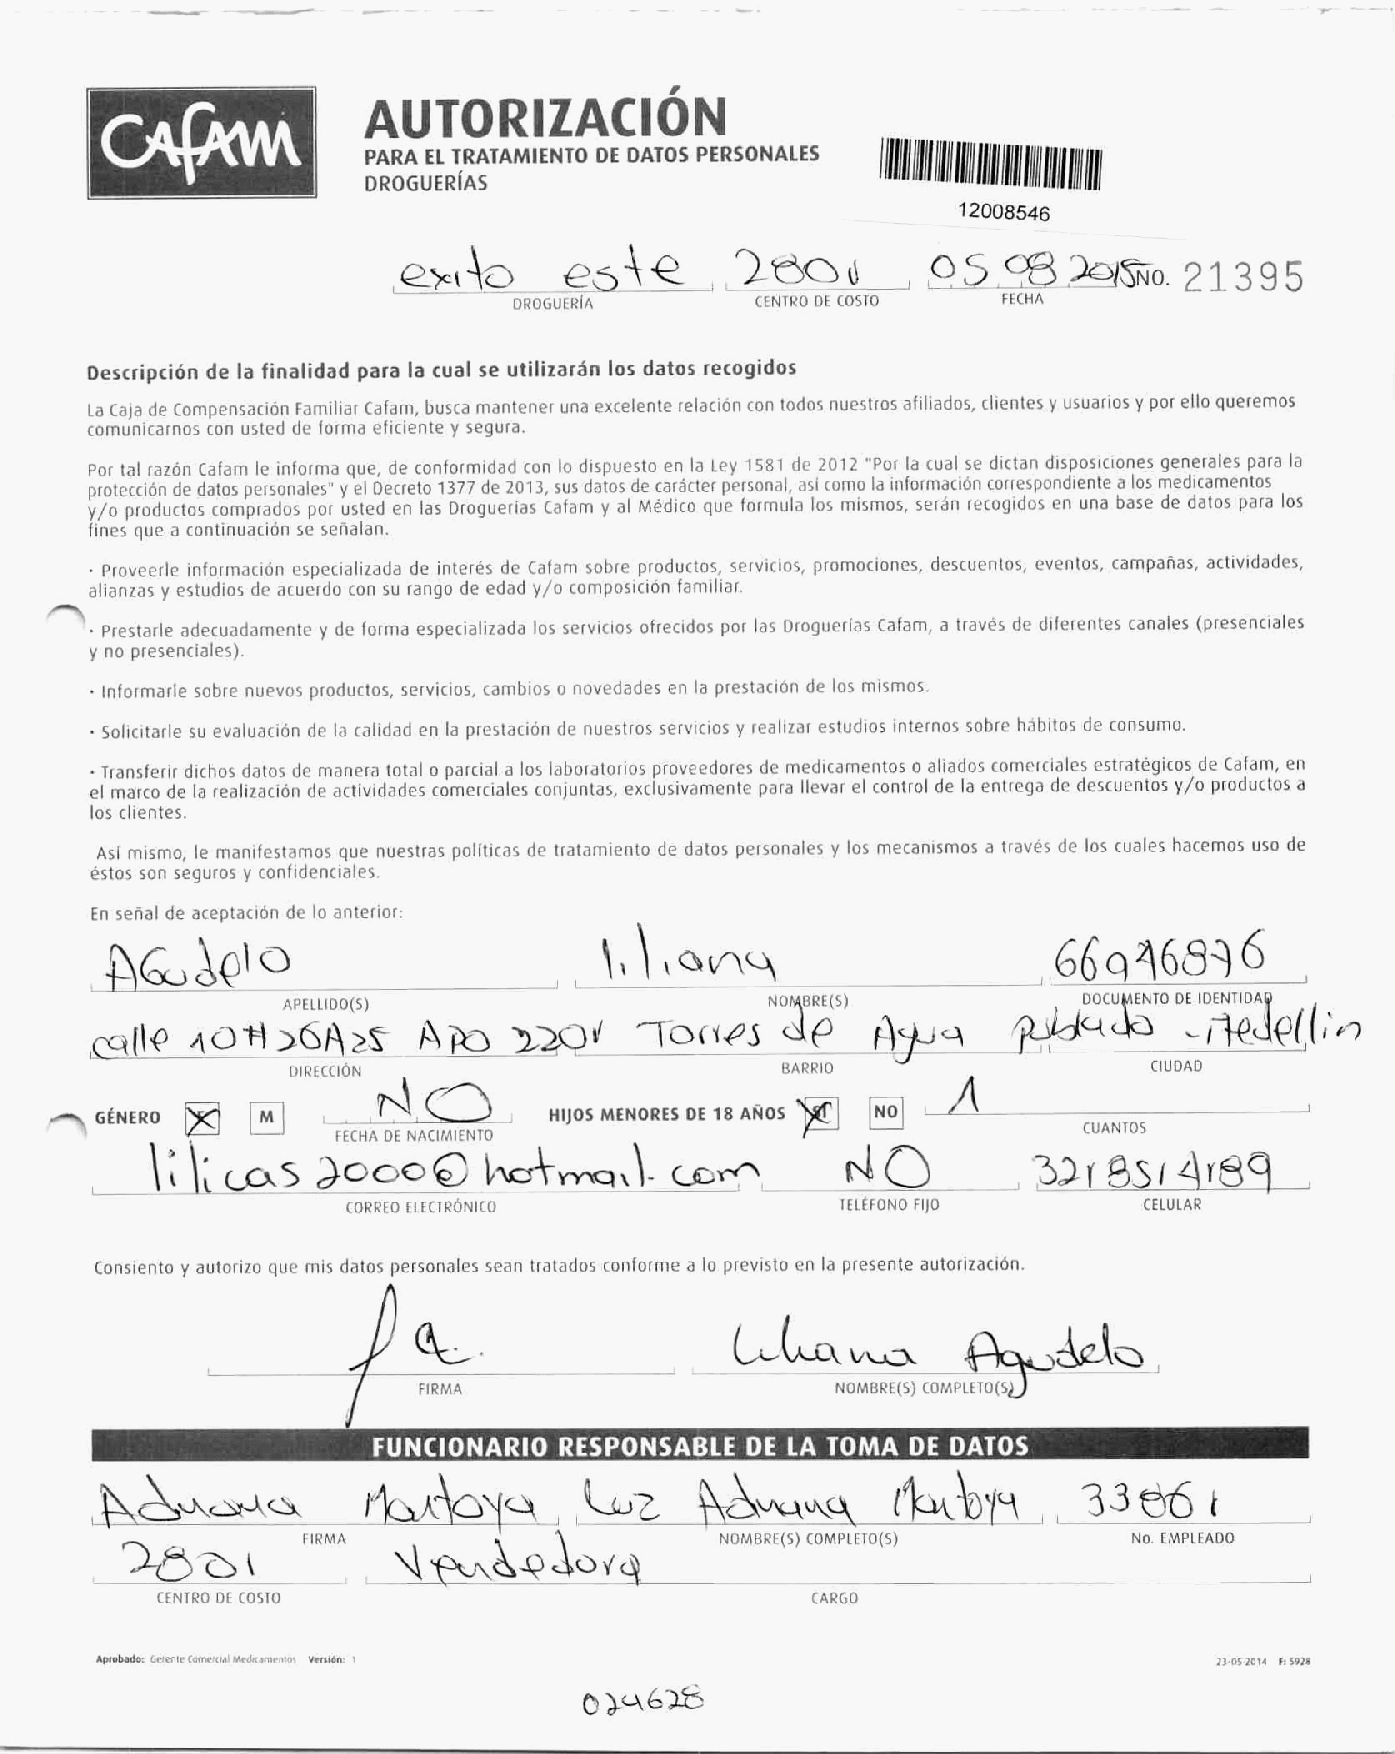 CAFAM
AUTORIZACIÓN
PARA EL TRATAMIENTO DE DATOS PERSONALES
DROGUERÍAS
12008546
exito este 2801 05 08 2015 NO. 21395
DROGUERÍA CENTRO DE COSTO FECHA
Descripción de la finalidad para la cual se utilizarán los datos recogidos
La Caja de Compensación Familiar Cafam, busca mantener una excelente relación con todos nuestros afiliados, clientes y usuarios y por ello queremos
comunicarnos con usted de forma eficiente y segura.
Por tal razón Cafam le informa que, de conformidad con lo dispuesto en la Ley 1581 de 2012 "Por la cual se dictan disposiciones generales para la
protección de datos personales" y el Decreto 1377 de 2013, sus datos de carácter personal, así como la información correspondiente a los medicamentos
y/o productos comprados por usted en las Droguerías Cafam y al Médico que formula los mismos, serán recogidos en una base de datos para los
fines que a continuación se señalan.
· Proveerle información especializada de interés de Cafam sobre productos, servicios, promociones, descuentos, eventos, campañas, actividades,
alianzas y estudios de acuerdo con su rango de edad y/o composición familiar.
· Prestarle adecuadamente y de forma especializada los servicios ofrecidos por las Droguerías Cafam, a través de diferentes canales (presenciales
y no presenciales).
· Informarle sobre nuevos productos, servicios, cambios o novedades en la prestación de los mismos.
· Solicitarle su evaluación de la calidad en la prestación de nuestros servicios y realizar estudios internos sobre hábitos de consumo.
· Transferir dichos datos de manera total o parcial a los laboratorios proveedores de medicamentos o aliados comerciales estratégicos de Cafam, en
el marco de la realización de actividades comerciales conjuntas, exclusivamente para llevar el control de la entrega de descuentos y/o productos a
los clientes.
Así mismo, le manifestamos que nuestras políticas de tratamiento de datos personales y los mecanismos a través de los cuales hacemos uso de
éstos son seguros y confidenciales.
En señal de aceptación de lo anterior:
AGudelo liliana 66976876
APELLIDO(S) NOMBRE(S) DOCUMENTO DE IDENTIDAD
calle 10#26A25 APO 2201 Torres de Agua Poblado - Medellin
DIRECCIÓN BARRIO CIUDAD
GÉNERO M NO HIJOS MENORES DE 18 AÑOS NO 1
FECHA DE NACIMIENTO CUANTOS
lilicas2000@hotmail.com NO 3218514189
CORREO ELECTRÓNICO TELÉFONO FIJO CELULAR
Consiento y autorizo que mis datos personales sean tratados conforme a lo previsto en la presente autorización.
Liliana Agudelo
FIRMA NOMBRE(S) COMPLETO(S)
FUNCIONARIO RESPONSABLE DE LA TOMA DE DATOS
Adriana Montoya Luz Adriana Montoya 33861
FIRMA NOMBRE(S) COMPLETO(S) No. EMPLEADO
2801 Vendedora
CENTRO DE COSTO CARGO
Aprobado: Gerente Comercial Medicamentos Versión: 1 23-05-2014 F: 5928
024628